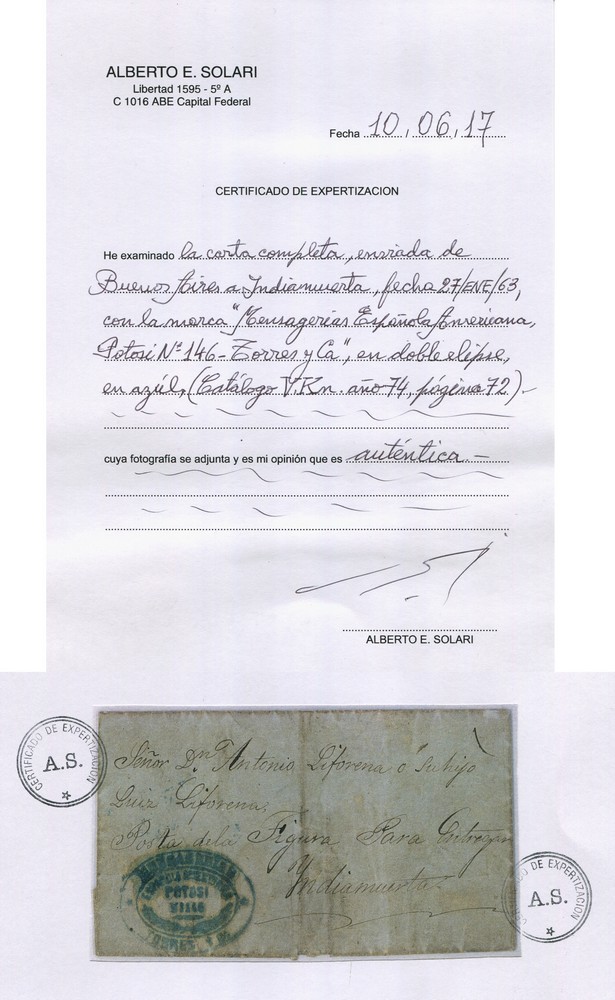 ALBERTO E. SOLARI
Libertad 1595 - 5º A
C 1016 ABE Capital Federal
Fecha 10,06,17
CERTIFICADO DE EXPERTIZACION
He examinado la carta completa, enviada de
Buenos Aires a Indiamuerta, fecha 27/ENE/63,
con la marca "Mensagerias Española Americana,
Potosí Nº 146 - Torres y Ca", en doble elipse,
en azúl, (Catálogo V.Kn. año 74, página 72).-
cuya fotografía se adjunta y es mi opinión que es auténtica.-
ALBERTO E. SOLARI
CERTIFICADO DE EXPERTIZACION
A.S.
Señor Dn Antonio Liforena ó su hijo
Luiz Liforena,
Posta dela Figura Para Entregar
Yndiamuerta
POTOSI
Nº 146
TORRES Y
DE EXPERTIZACION
A.S.